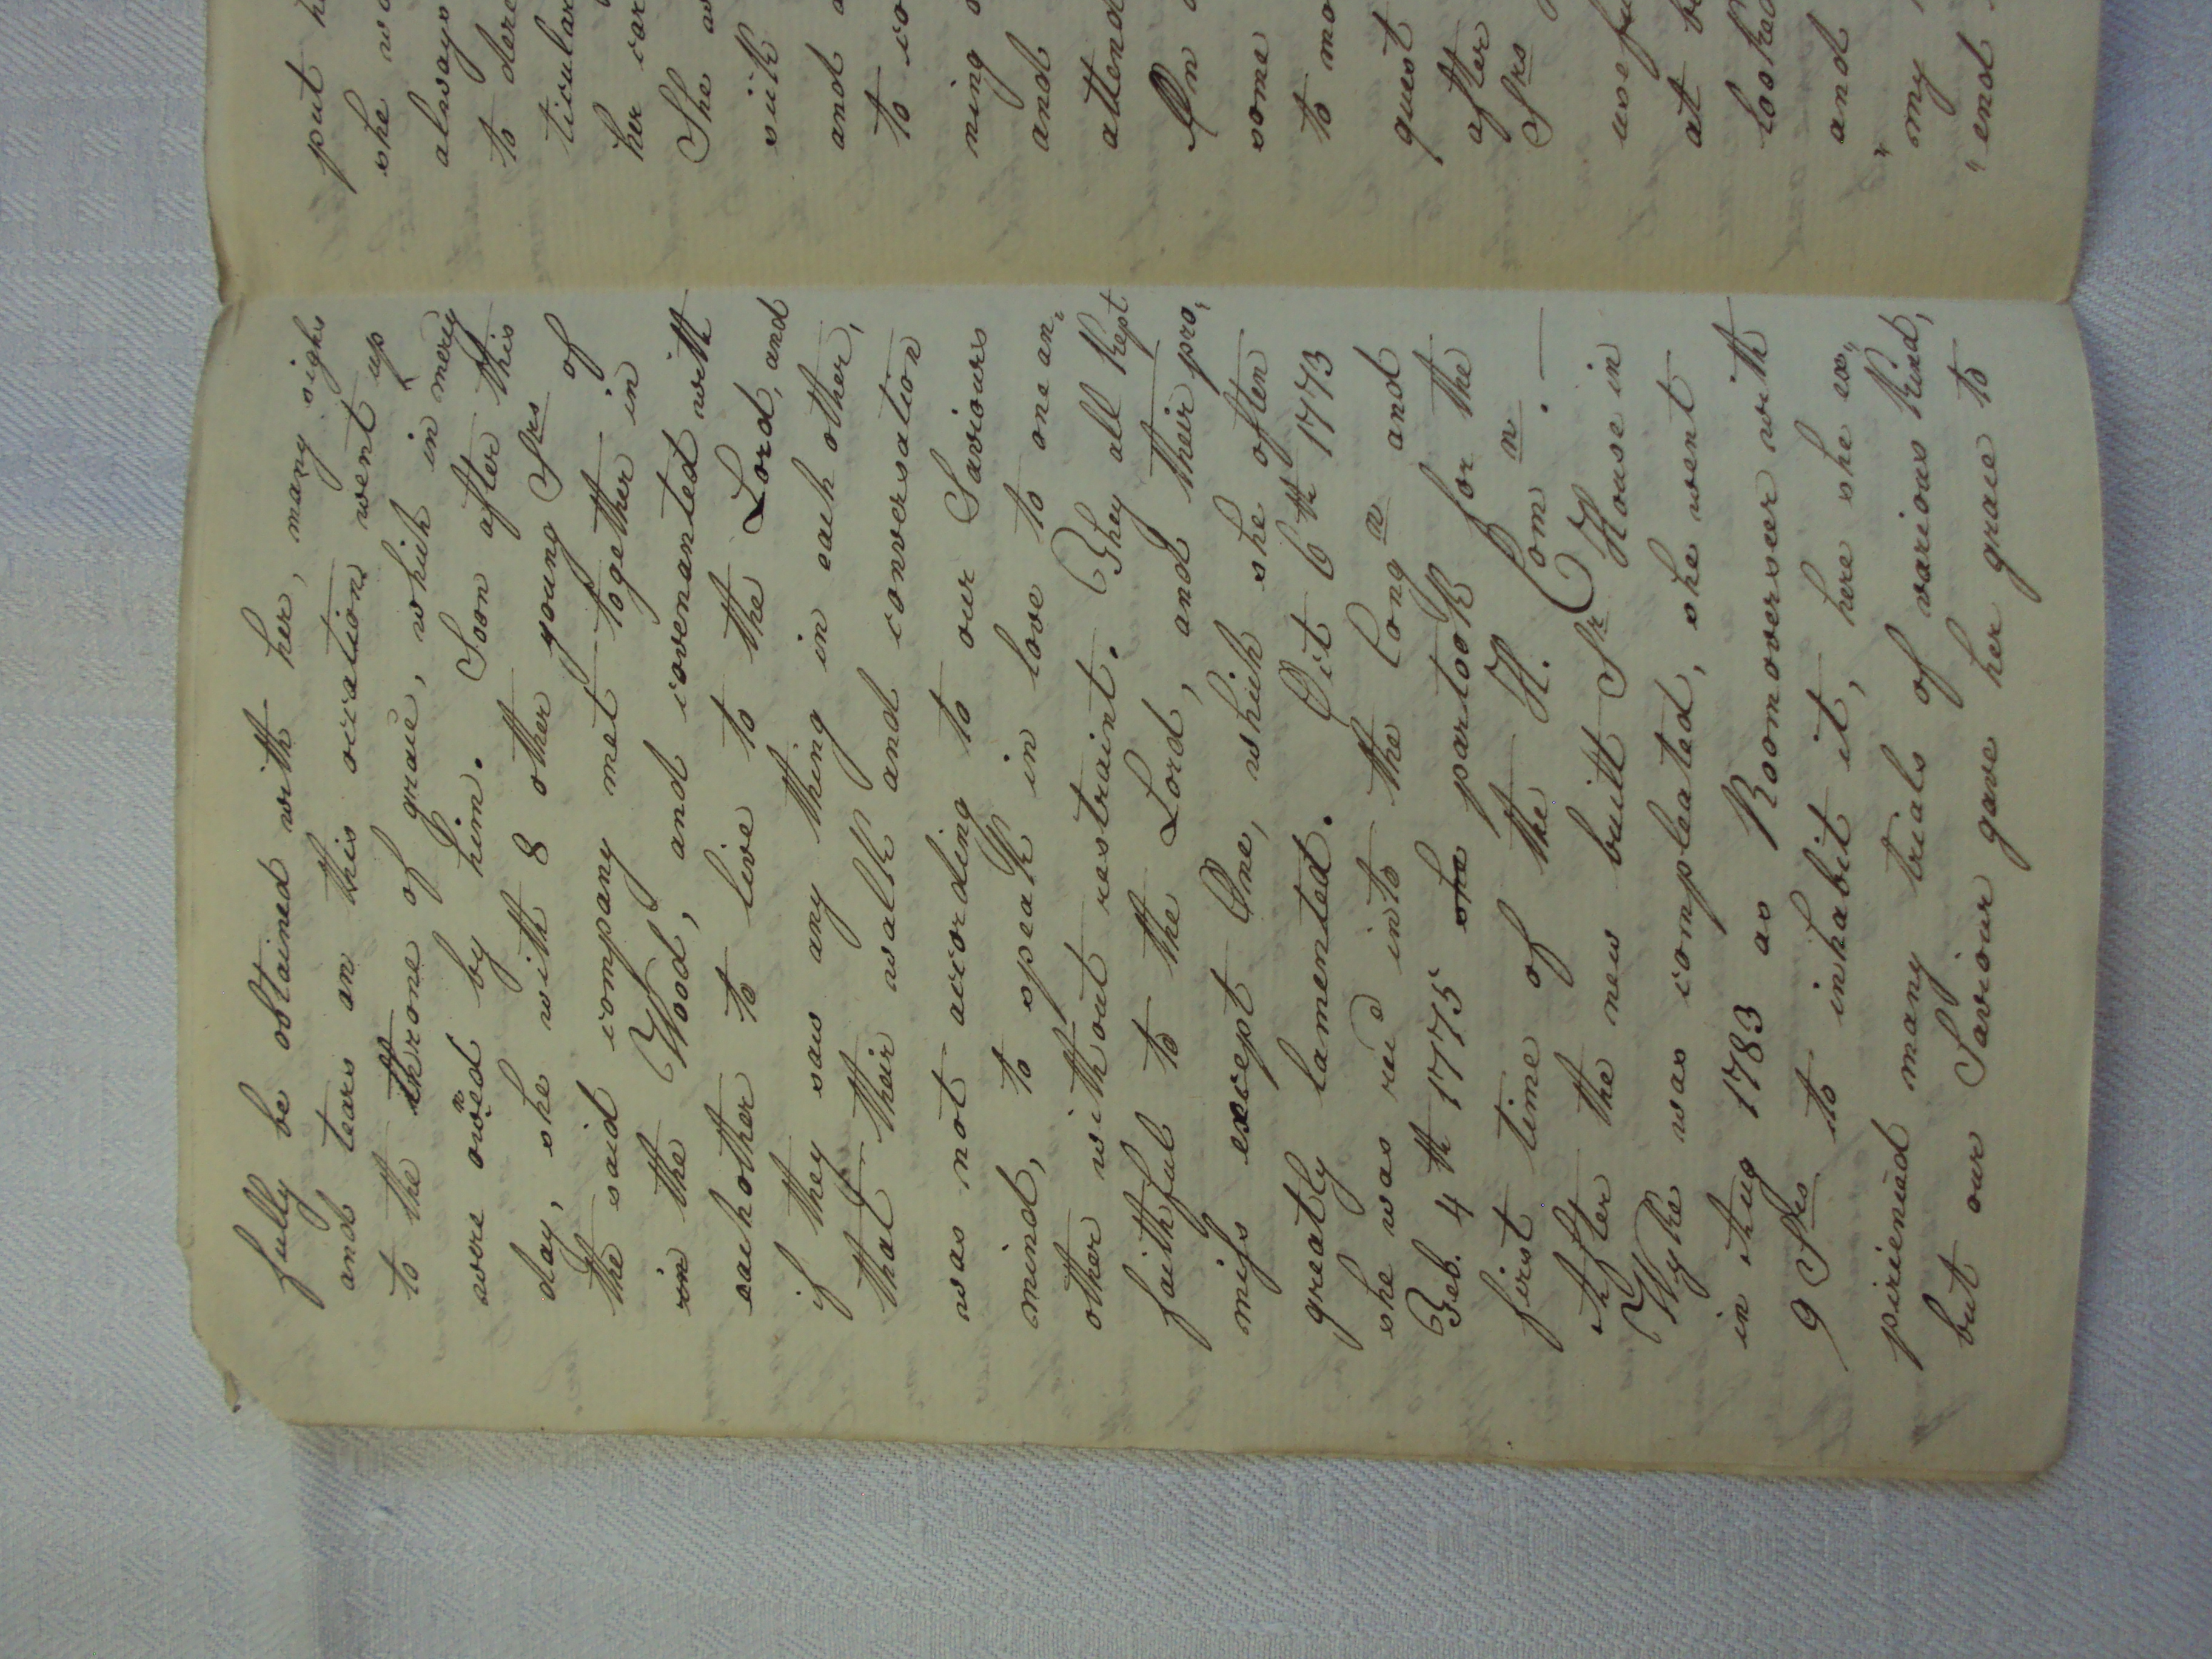 fully be obtained with her, many sighs
and tears on this occation went up
to the throne of grace, which in mercy
were owned by him. Soon after this
day, she with 8 other young Srs of
the said company met together in
in the Wood, and covenanted with
eachother to live to the Lord, and
if they saw any thing in each other,
that their walk and conversation
was not according to our Saviours
mind, to speak in love to one an„
other without restraint. They all kept
faithful to the Lord, and their pro„
miss except One, which she often
greatly lamented. Oct 6th 1773
she was recd into the Congn and
Feb. 4th 1775 she partook for the
first time of the H. Comn. —
After the new built Sr House in
Wyke was compleated, she went
in Aug 1783 as Roomoverseer with
9 Srs to inhabit it, here she ex„
pirienced many trials of various kind,
but our Saviour gave her grace to
put h
she wo
always
to dere
ticular
her car
She w
sick
and a
to co
ning o
and
attend
On a
some
to mo
quest
after
Srs
usefu
at be
looked
and
"my
"end